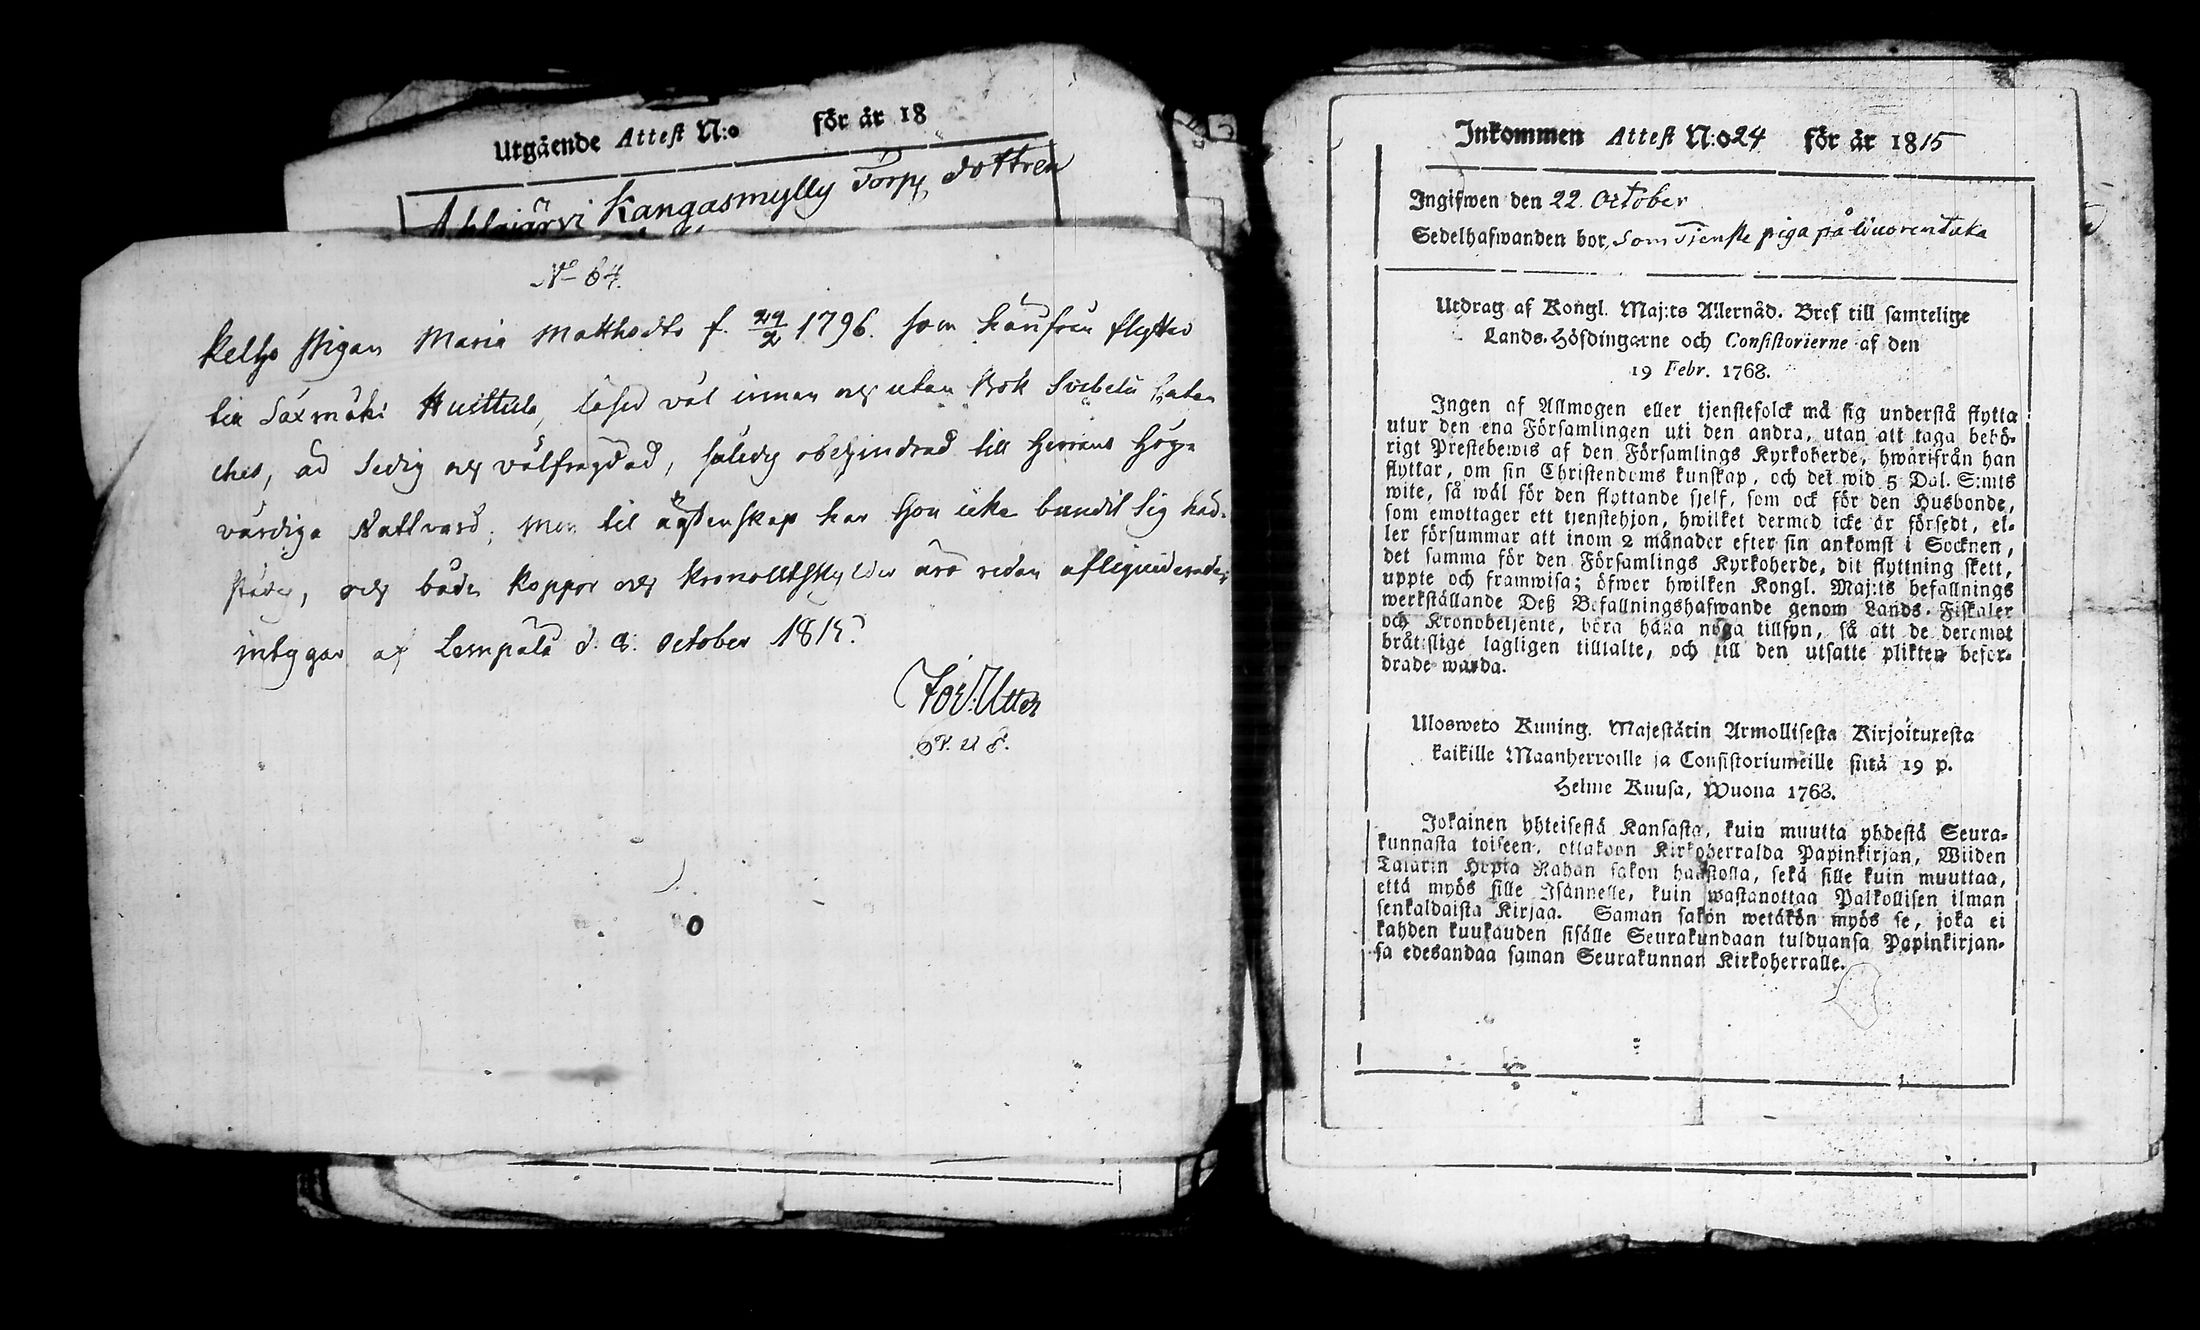 Utgående Attest N:o för år 18
Ahlajärvi Kangasmylly Torp dottren
No 64.
Pigan Maria Matthsdtr f. 29/2 1796. som härifrån flyttar
till Säxmäki Huittula, läser väl innan och utan Bok Svebelii Cate-
ches, är sedig och välfrägdad, således obehindrad till Herrans Hög-
värdiga Nattvard; men til ägtenskap har hon icke bundit sig här-
städes, och både koppor och kronoutskylder äro redan afliquiderade;
intygar af Lempälä d. 8. October 1815.
Inkommen Attest N:o 24 för år 1815
Ingifwen den 22 October
Sedelhafwanden bor som Tjenste piga på Wuorentaka
Utdrag af Kongl. Maj:ts Allernåd. Bref till samtelige
Lands-Höfdingarne och Consistorierne af den
19 Febr. 1768.
Ingen af Allmogen eller tjenstefolck må sig understå flytta
utur den ena Församlingen uti den andra, utan att taga behö-
rigt Prestebewis af den Församlings Kyrkoherde, hwarifrån han
flyttar, om sin Christendoms kunskap, och det wid 5 Dal. S:mts
wite, så wäl för den flyttande sjelf, som ock för den Husbonde,
som emottager ett tjenstehjon, hwilket dermed icke är försedt, el-
ler försummar att inom 2 månader efter sin ankomst i Socknen,
det samma för den Församlings Kyrkoherde, dit flyttning skett,
uppte och framwisa; öfwer hwilken Kongl. Maj:ts befallnings
werkställande Deß Befallningshafwande genom Lands-Fiskaler
och Kronobetjente, böra hålla noga tillsyn, så att de deremot
bråtslige lagligen tilltalte, och till den utsatte plikten befor-
drade warda.
Ulosweto Kuning. Majestätin Armollisesta Kirjoituxesta
kaikille Maanherroille ja Consistoriumeille siitä 19 p.
Helme Kuusa, Wuona 1768.
Jokainen yhteisestä Kansasta, kuin muutta yhdestä Seura-
kunnasta toiseen, ottakoon Kirkoherralda Papinkirjan, Wiiden
Talarin Hopia Rahan sakon haastolla, sekä sille kuin muuttaa,
että myös sille Isännelle, kuin wastanottaa Palkollisen ilman
senkaldaista Kirjaa. Saman sakon wetäkön myös se, joka ei
kahden kuukauden sisälle Seurakundaan tulduansa Papinkirjan-
sa edesandaa saman Seurakunnan Kirkoherralle.